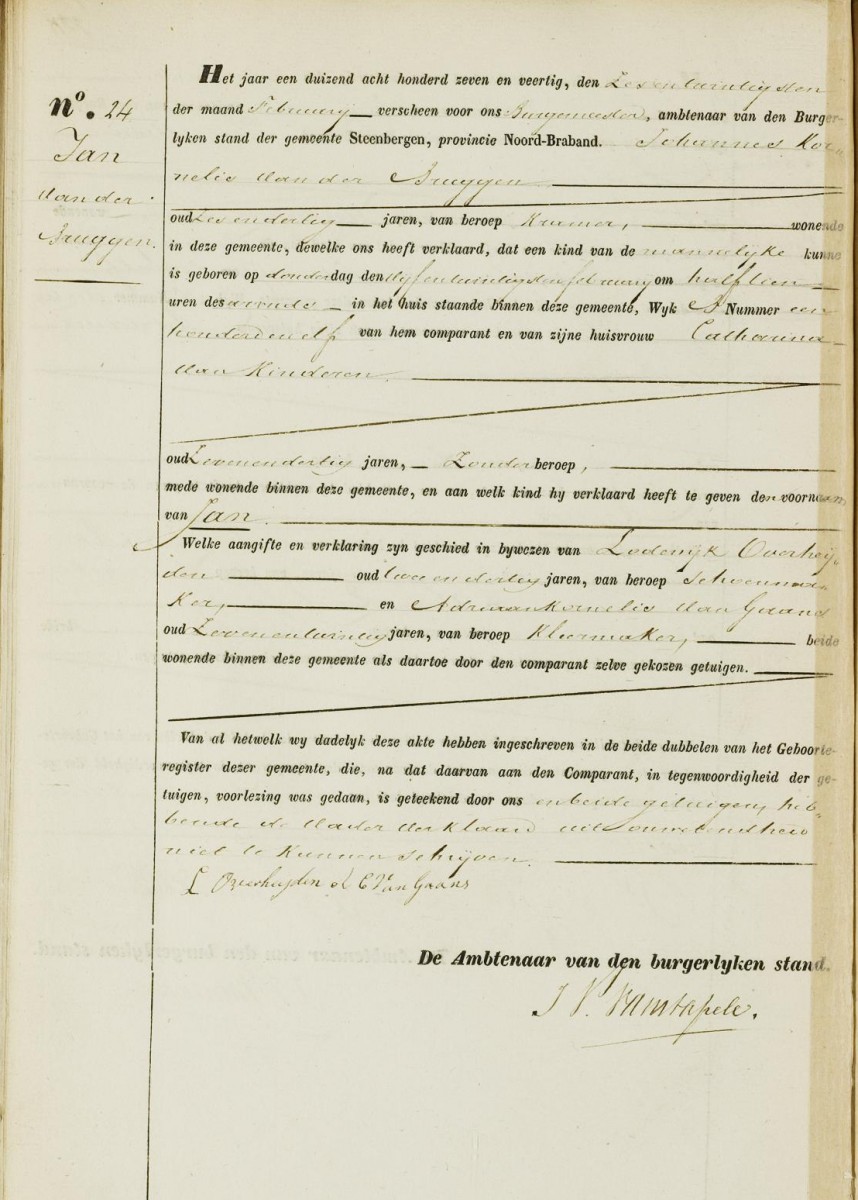 nº. 24
Jan
van der
Bruggen.
Het jaar een duizend acht honderd zeven en veertig, den Zesentwintigsten
der maand February verscheen voor ons Burgemeester, ambtenaar van den Burger-
lyken stand der gemeente Steenbergen, provincie Noord-Braband. Johannes Kor„
nelis van der Bruggen
oud Zesendertig jaren, van beroep Kramer, wonende
in deze gemeente, dewelke ons heeft verklaard, dat een kind van de mannelyke kunne
is geboren op donderdag den vyfentwintigsten february om half tien
uren des avonds in het huis staande binnen deze gemeente, Wyk Nummer een
honderd en elf van hem comparant en van zijne huisvrouw Catharina
van Kinderen.
oud Zevenendertig jaren, Zonder beroep,
mede wonende binnen deze gemeente, en aan welk kind hy verklaard heeft te geven den voornaam
van Jan.
Welke aangifte en verklaring zyn geschied in bywezen van Lodewyk Overhey„
den oud twee en dertig jaren, van beroep Schoenma„
ker, en Adriaan Kornelis van Gaans
oud Zevenentwintig jaren, van beroep Kleermaker, beide
wonende binnen deze gemeente als daartoe door den comparant zelve gekozen getuigen.
Van al hetwelk wy dadelyk deze akte hebben ingeschreven in de beide dubbelen van het Geboorte-
register dezer gemeente, die, na dat daarvan aan den Comparant, in tegenwoordigheid der ge-
tuigen, voorlezing was gedaan, is geteekend door ons en beide getuigen, heb„
bende de vader verklaard uit onwetendheid
niet te kunnen schryven.
L Overheyden A C Van Gaans
De Ambtenaar van den burgerlyken stand.